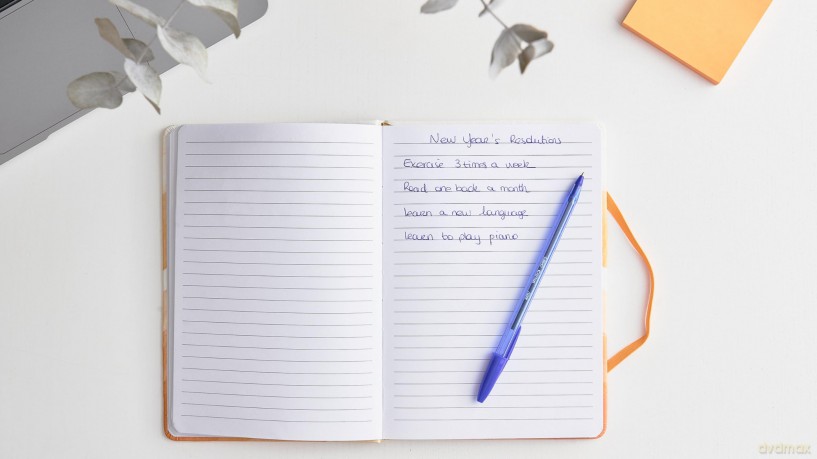 New Year's Resolutions
Exercise 3 times a week
Read one book a month
Learn a new language
Learn to play piano
dvdmax